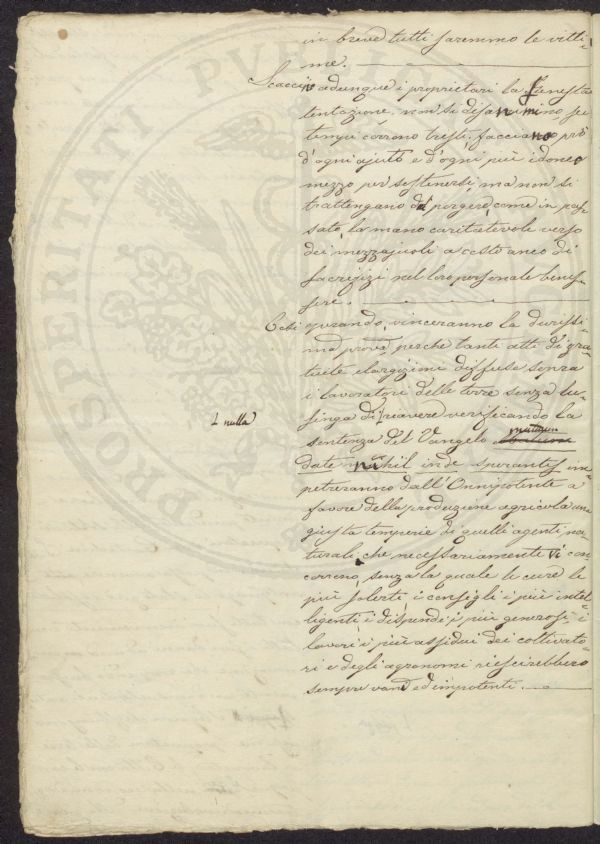 in breve tutti saremmo le vitti-
me.
Scaccino adunque i proprietari la funesta
tentazione, non si disanimino se i
tempi corrono tristi, facciano prò
d'ogni ajuto e d'ogni più idoneo
mezzo per sostenersi, ma non si
trattengano dal porgere, come in pas-
sato, la mano caritatevole verso
dei mezzajuoli a costo anco di
sacrifizi nel loro personale benes-
sere.
Così operando, vinceranno la durissi-
ma prova, perche tanti atti di gra-
tuite elargizioni diffuse sopra
i lavoratori delle terre senza lu-
singa di riavere verificando la
nulla
sentenza del Vangelo mutuum
date nihil inde sperantes im-
petreranno dall'Onnipotente a
favore della produzione agricola una
giusta temperie di quelli agenti na-
turali che necessariamente vi con-
corrono, senza la quale le cure le
più solerti i consigli i più intel-
ligenti i dispendi i più generosi i
lavori i più assidui dei coltivato-
ri e degli agronomi riescirebbero
sempre vani ed impotenti.
PROSPERITATI PVBLICAE